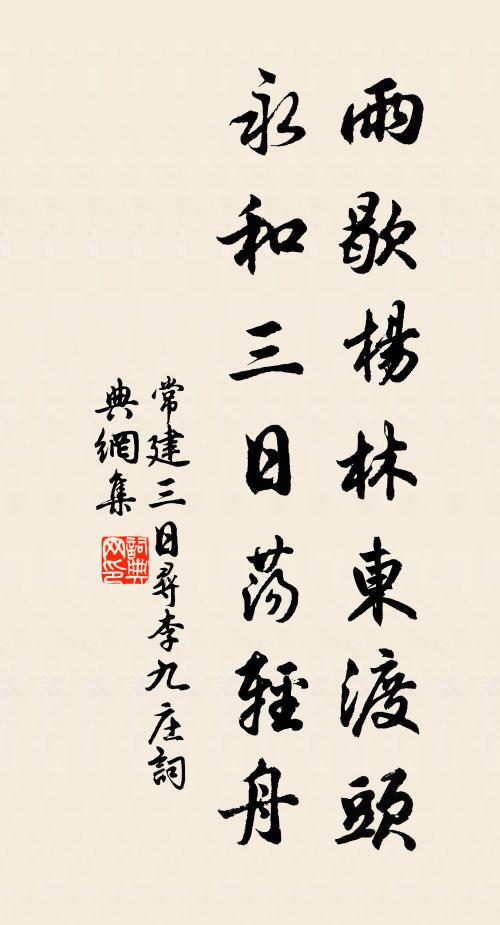 雨歇楊林東渡頭
永和三日荡輕舟
常建三日尋李九庄詞
典網集
詞典网印